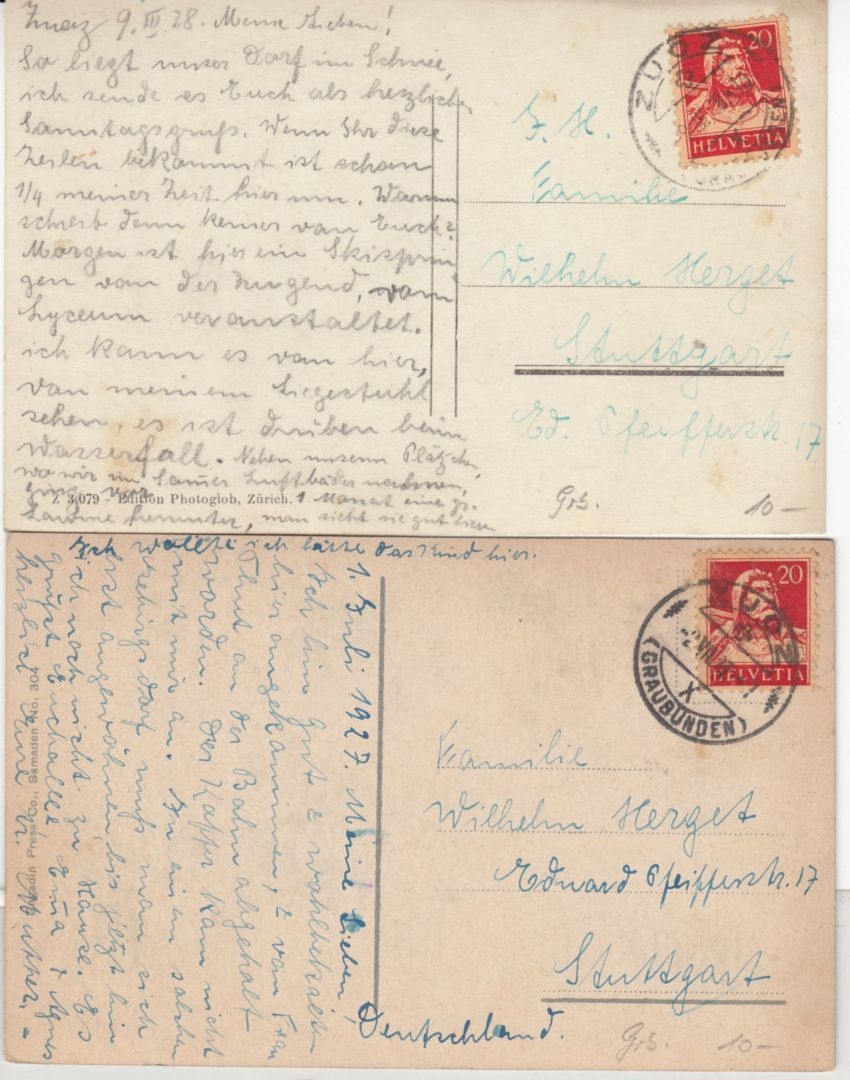 Zuoz 9. III. 28. Meine Lieben!
So liegt unser Dorf im Schnee,
ich sende es Euch als herzlichen
Sonntagsgruß. Wenn Ihr diese
Zeilen bekommt ist schon
1/4 meiner Zeit hier um. Warum
schreib denn keiner von Euch?
Morgen ist hier ein Skisprin
gen von der Jugend, vom
Lyceum veranstaltet.
ich kann es von hier,
von meinem Liegestuhl
sehen, es ist drüben beim
Wasserfall. Neben unserm Plätzchen,
wo wir im Luftbäder nahmen,
ging vor 1 Monat eine gr.
Lawine herunter, man sieht sie gut liegen
Z 3.079 - Edition Photoglob, Zürich.
ZUOZ
20
HELVETIA
Familie
Wilhelm Herget
Stuttgart
Ed. Pfeifferstr. 17
Grb.
10 -
Ich wollte ich hätte das Kind hier.
1. Juli 1927. Meine Lieben,
Ich bin gut & wohlbehalten
hier angekommen, & von Frau
an der Bahn abgeholt
worden. Der Koffer kam nicht
mit mir an. In einem solchen
muß man sich
erst angewöhnen, bis jetzt bin
ich noch nicht zu Hause. Es
grüßt Euch alle, Ema & Agnes
herzlich Eure l. Mutter. -
Engadin Press Co., Samaden No. 304
20
HELVETIA
ZUOZ
-2.VII.27
X
(GRAUBÜNDEN)
Familie
Wilhelm Herget
Eduard Pfeifferstr. 17
Stuttgart
Deutschland.
Grb.
10 -